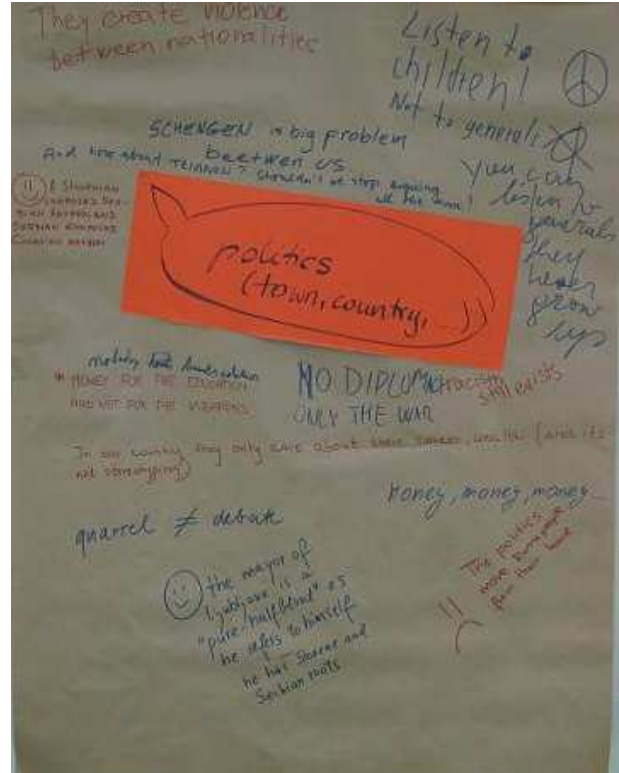 They create violence
between nationalities
Listen to
children!
Not to generals
SCHENGEN is big problem
beetwen us
And how about TRIANON? Shouldn't we stop arguing
all the time!
You can
listen to
generals
they
never
grow
up
politics
(town, country, ...)
* MONEY FOR THE EDUCATION
AND NOT FOR THE WEAPONS
NO DIPLOMACY
ONLY THE WAR
racism
still exists
In our country they only care about their career, wealth (and it's
not stereotyping)
money, money, money...
quarrel ≠ debate
The politics
move
from their
the mayor of
Ljubljana is a
"pure halfblood" as
he refers to himself
he has Slovene and
Serbian roots